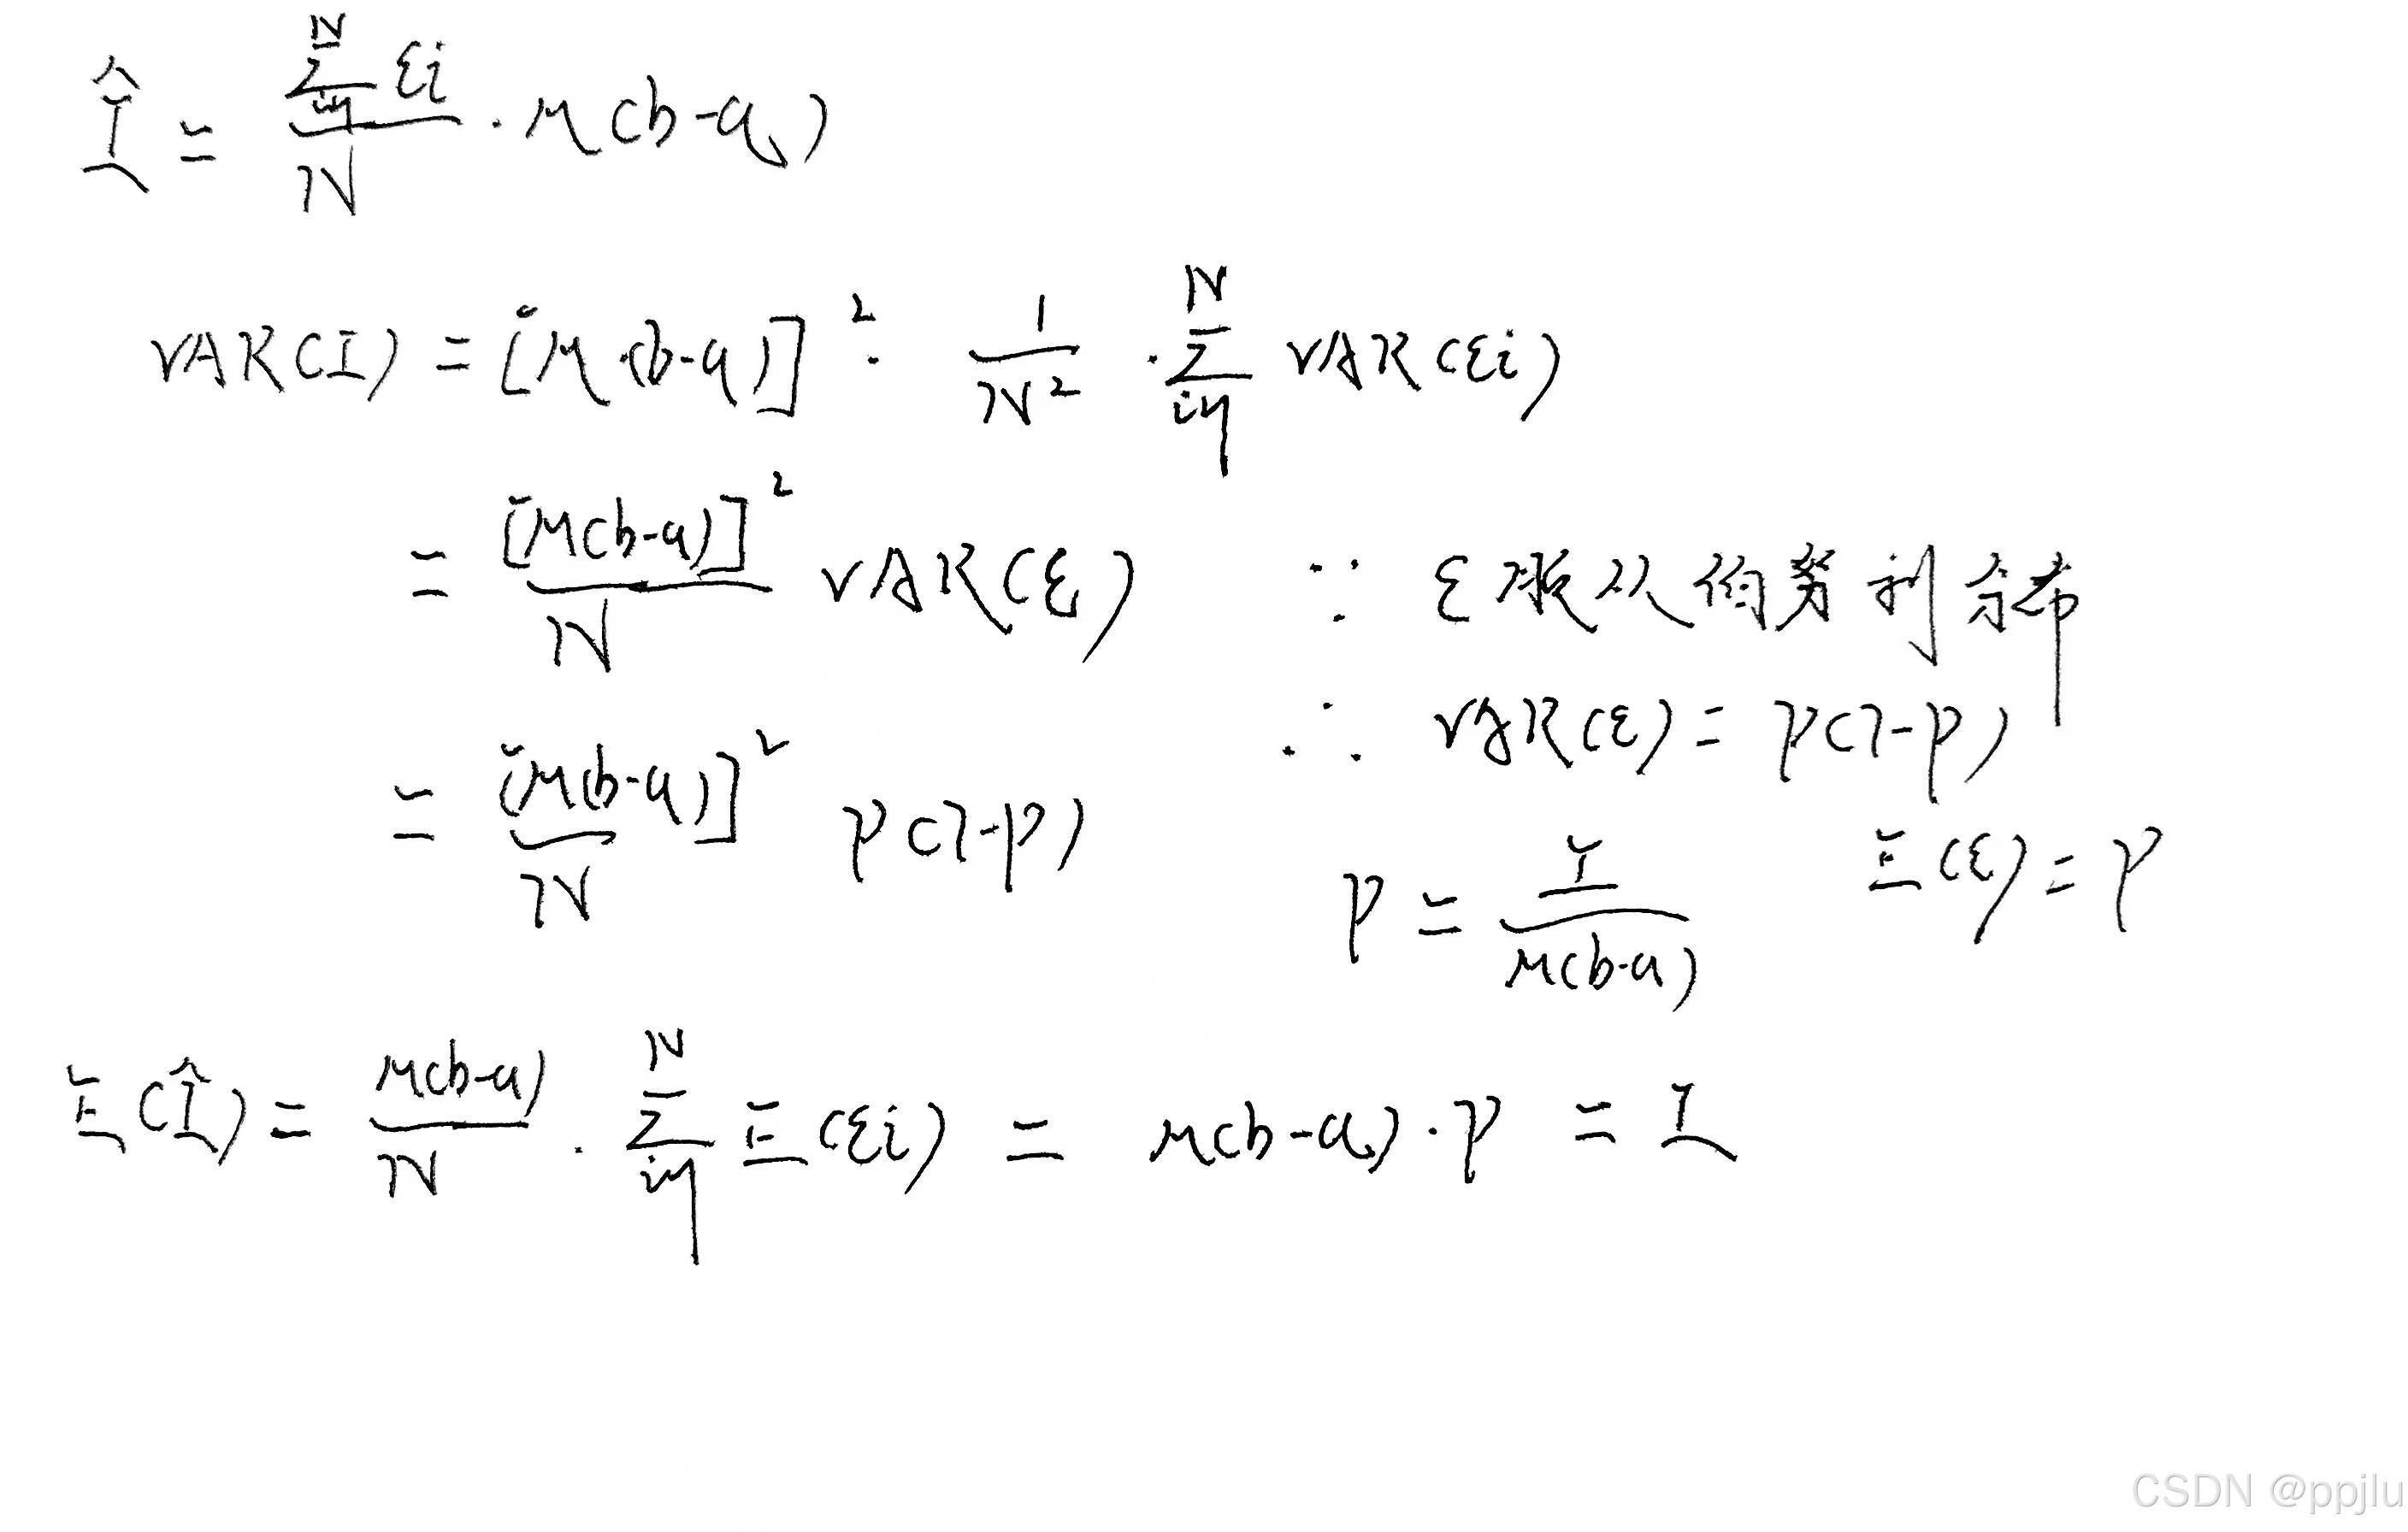 Î = \frac{\sum_{i=1}^{N} ε_i}{N} · M(b-a)
VAR(I) = [M·(b-a)]² · \frac{1}{N²} · \sum_{i=1}^{N} VAR(ε_i)
= \frac{[M(b-a)]²}{N} VAR(ε) ∵ ε服从伯努利分布
= \frac{[M(b-a)]²}{N} P(1-P) ∴ VAR(ε) = P(1-P)
P = \frac{I}{M(b-a)} E(ε) = P
E(Î) = \frac{M(b-a)}{N} · \sum_{i=1}^{N} E(ε_i) = M(b-a)·P = I
CSDN @ppjlu